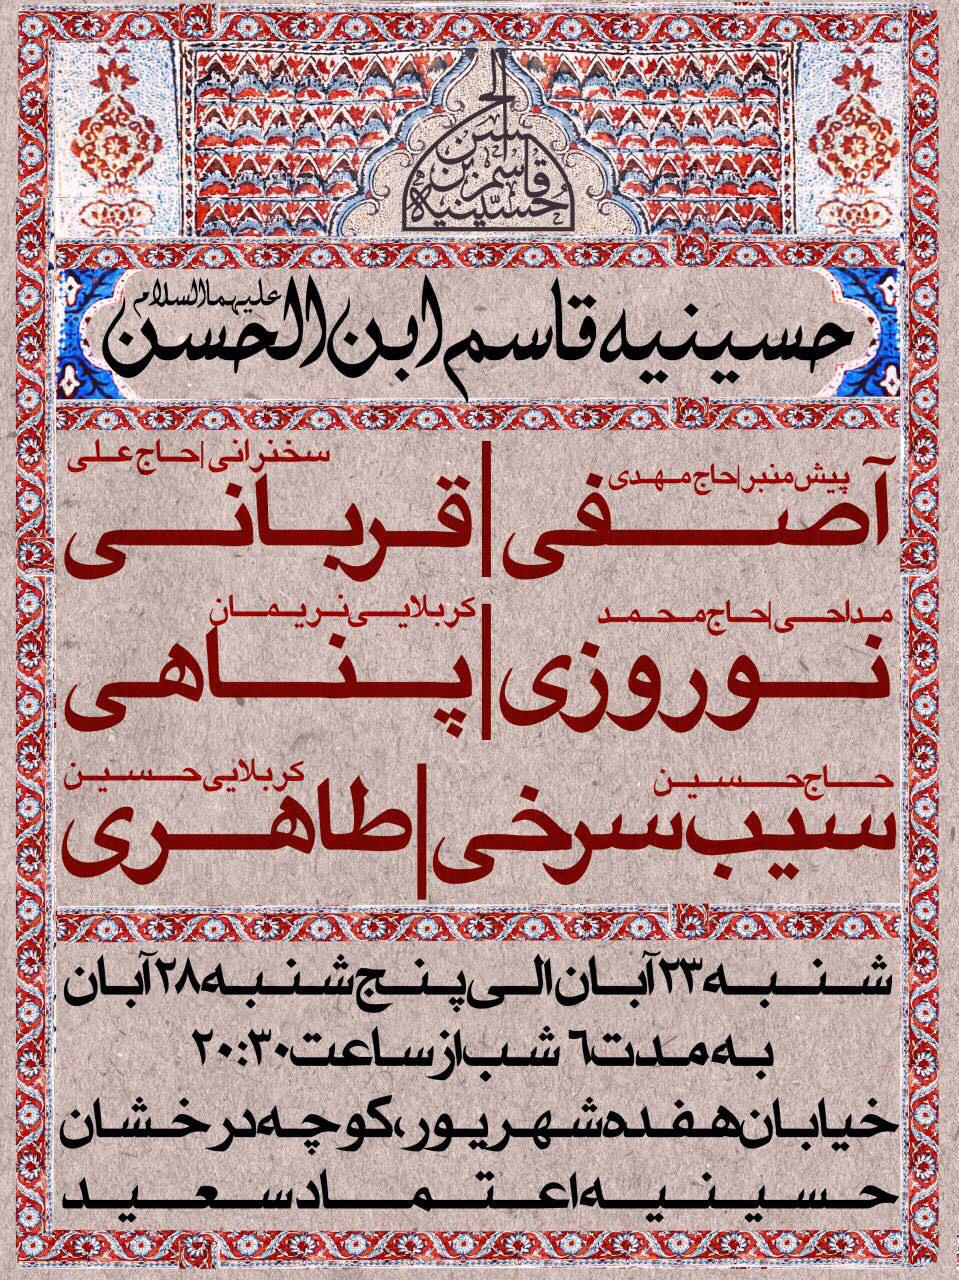 حسینیه
قاسم بن
الحسن
حسینیه قاسم ابن الحسن علیهما السلام
پیش منبر | حاج مهدی
آصفی
سخنرانی | حاج علی
قربانی
مداحی | حاج محمد
نوروزی
کربلایی نریمان
پناهی
حاج حسین
سیب سرخی
کربلایی حسین
طاهری
شنبه ۲۳ آبان الی پنج شنبه ۲۸ آبان
به مدت ۶ شب از ساعت ۲۰:۳۰
خیابان هفده شهریور، کوچه درخشان
حسینیه اعتماد سعید